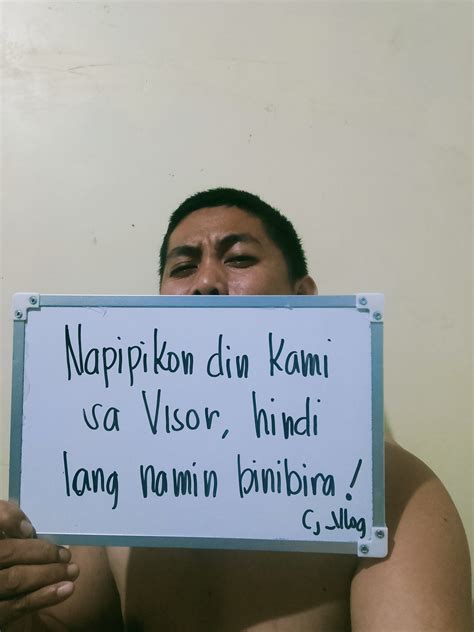 Napipikon din kami
sa Visor, hindi
lang namin binibira!
CJ_Vlog